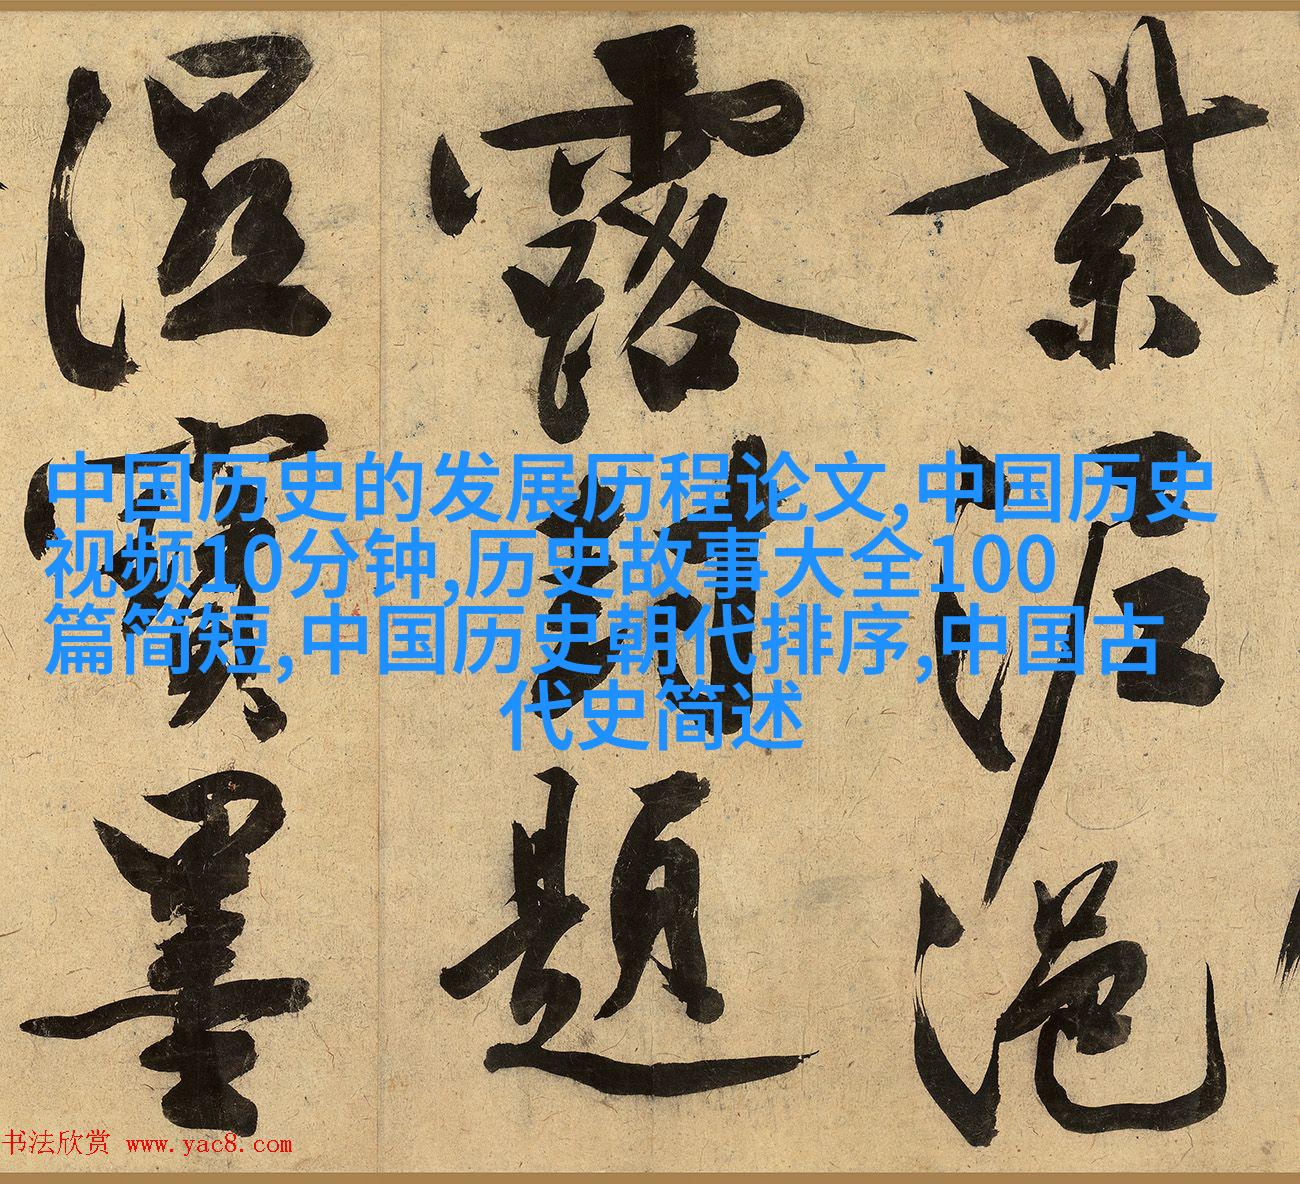 紫泥浥
露封題
溼寶墨
中国历史的发展历程论文,中国历史
视频10分钟,历史故事大全100
篇简短,中国历史朝代排序,中国古
代史简述
书法欣赏 www.yac8.com